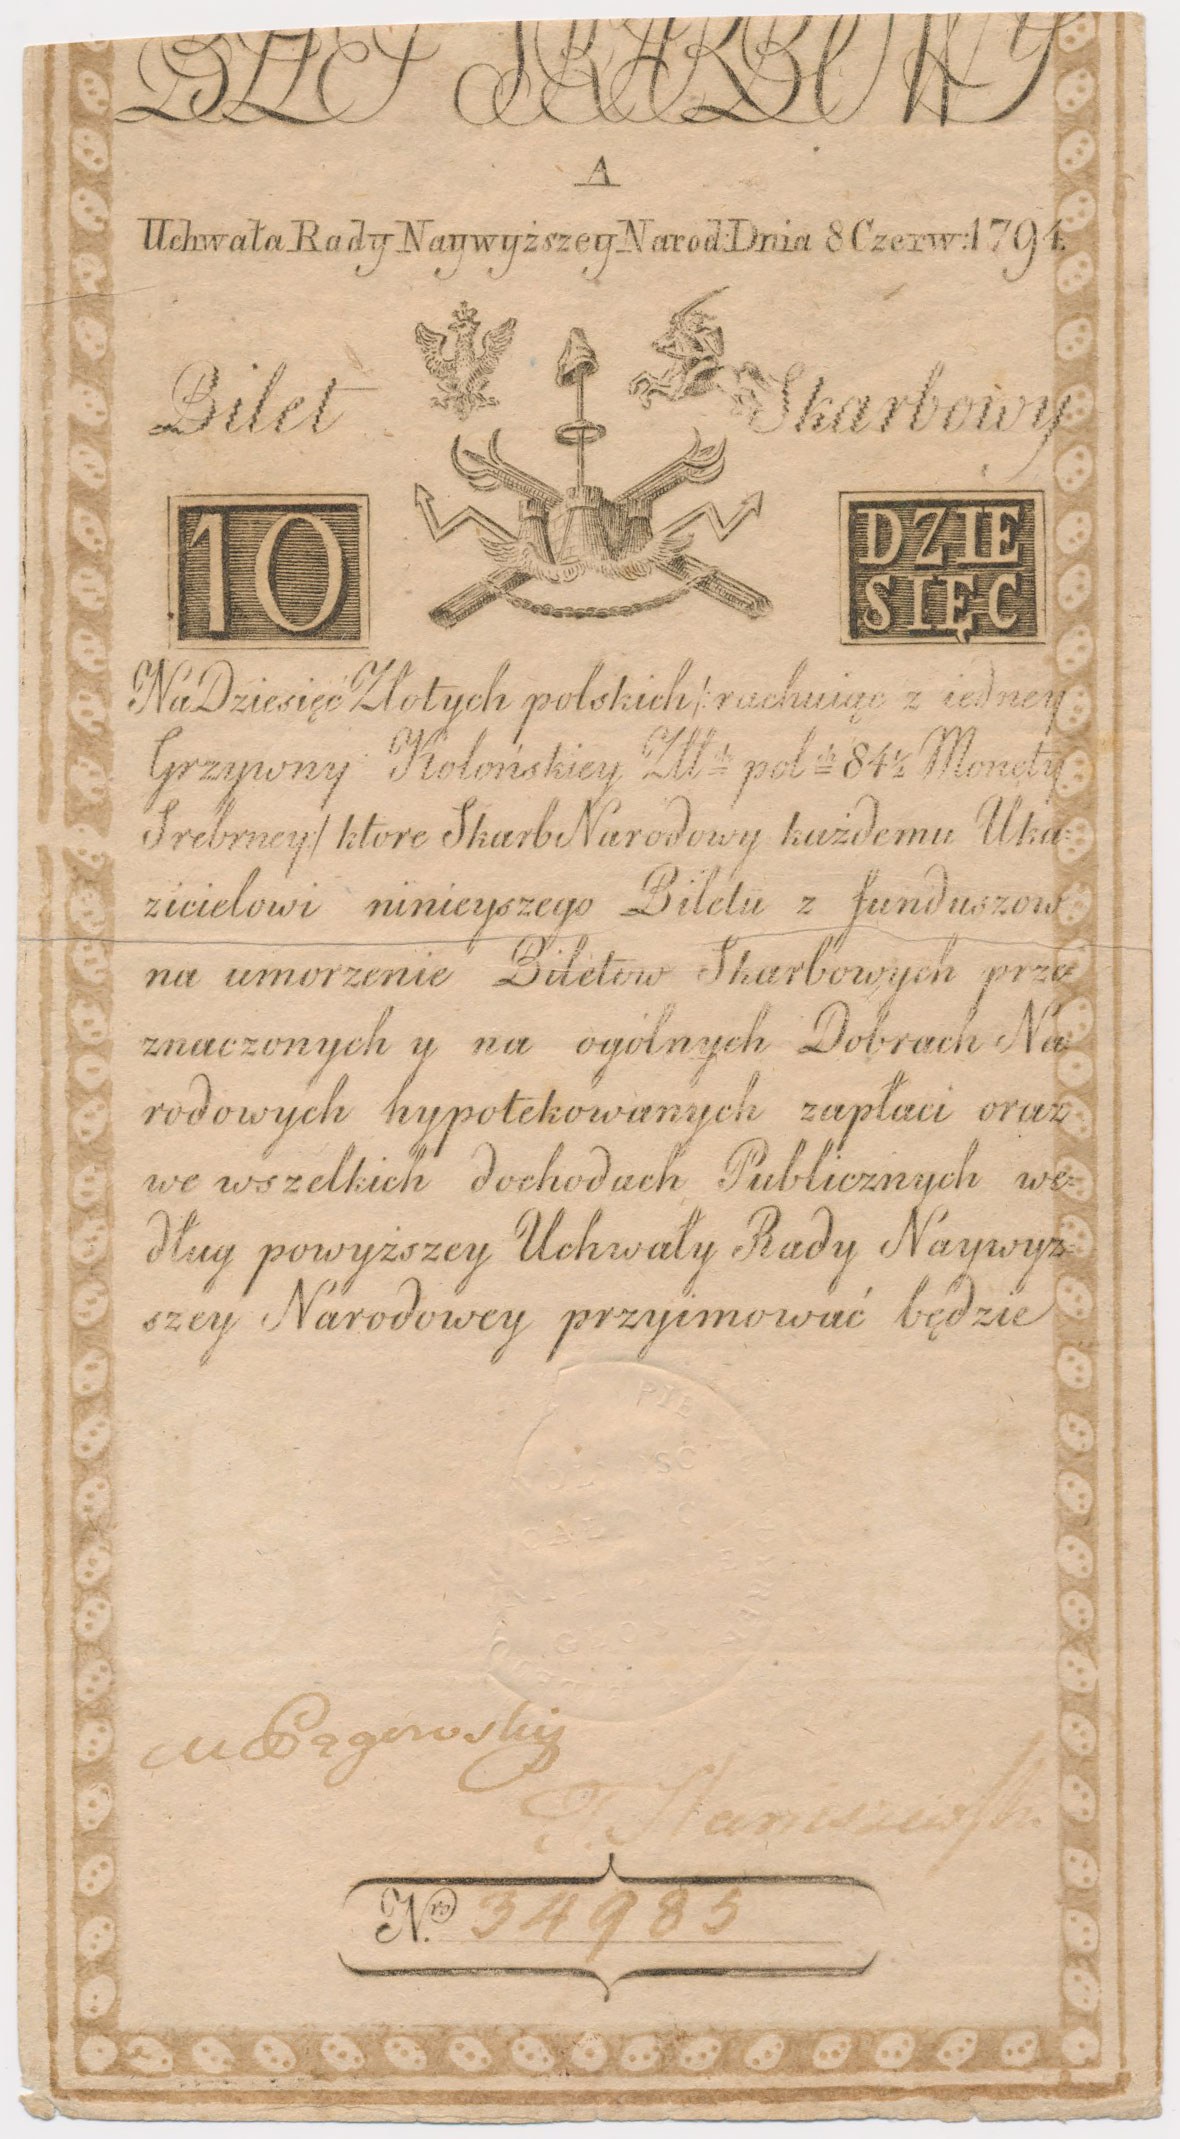 BILET SKARBOWY
A
Uchwała Rady Naywyższey Narod: Dnia 8 Czerw: 1794.
Bilet Skarbowy
10
DZIE
SIĘC
Na Dziesięć Złotych polskich /: rachuiąc z iedney
Grzywny Kolońskiey Złł: pol: 84½ Monety
Srebrney / ktore Skarb Narodowy każdemu Uka=
zicielowi ninieyszego Biletu z funduszow
na umorzenie Biletow Skarbowych prze
znaczonych y na ogólnych Dobrach Na
rodowych hypotekowanych zapłaci oraz
we wszelkich dochodach Publicznych we=
dług powyższey Uchwały Rady Naywyż=
szey Narodowey przyimować będzie
M Pągowski
F. Staniszewski
Nro. 34985